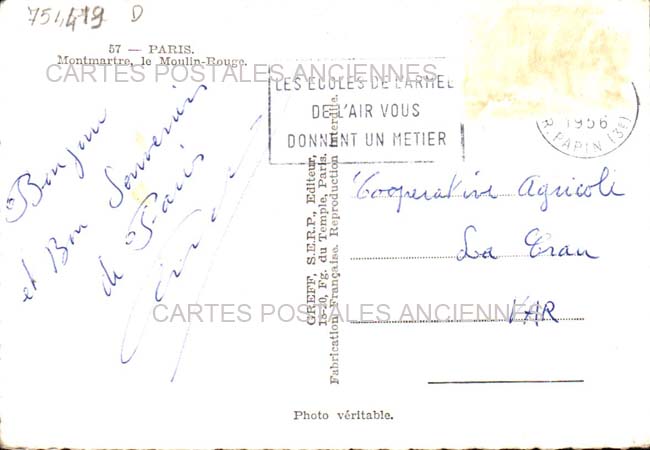 754419 D
57 — PARIS.
Montmartre, le Moulin-Rouge.
CARTES POSTALES ANCIENNES
LES ECOLES DE L'ARMEE
DE L'AIR VOUS
DONNENT UN METIER
1956
R. PAPIN (3E)
Bonjour
et Bon Souvenirs
de Paris
Cooperative Agricole
La Crau
VAR
GREFF, S.E.R.P., Editeur,
18-20, Fg. du Temple, Paris.
Fabrication Française. Reproduction interdite.
CARTES POSTALES ANCIENNES
Photo véritable.